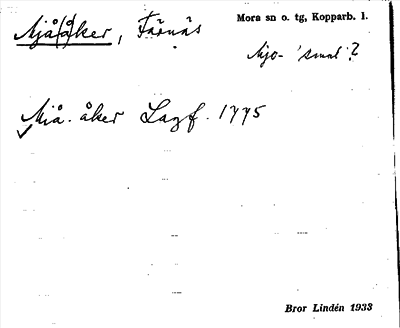 Mjå(å)ker, Färnäs
Mora sn o. tg, Kopparb. l.
Mjo- 'smal'?
Mjå-åker Lagf. 1775
Bror Lindén 1933